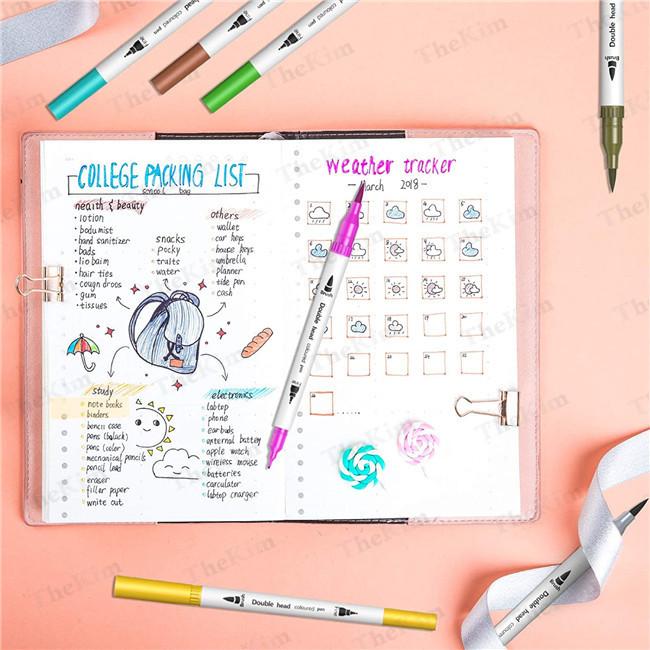 COLLEGE PACKING LIST
school bag
health & beauty
lotion
bodumist
hand sanitizer
bads
lio baim
hair ties
cough droos
gum
tissues
snacks
pocky
traits
water
others
wallet
car keys
house keys
umbrella
planner
tide pen
cash
study
note books
binders
bencil case
pens (balack)
pens (color)
mecnanical pencils
pencil lead
eraser
filler paper
write out
electronics
labtop
phone
earbuds
external battery
apple watch
wireless mouse
batteries
carculator
labtop charger
weather tracker
March 2018
Brush
Double head coloured pen
Fine
Brush
Double head coloured pen
Fine
Brush
Double head
Brush
Double head
TheKim